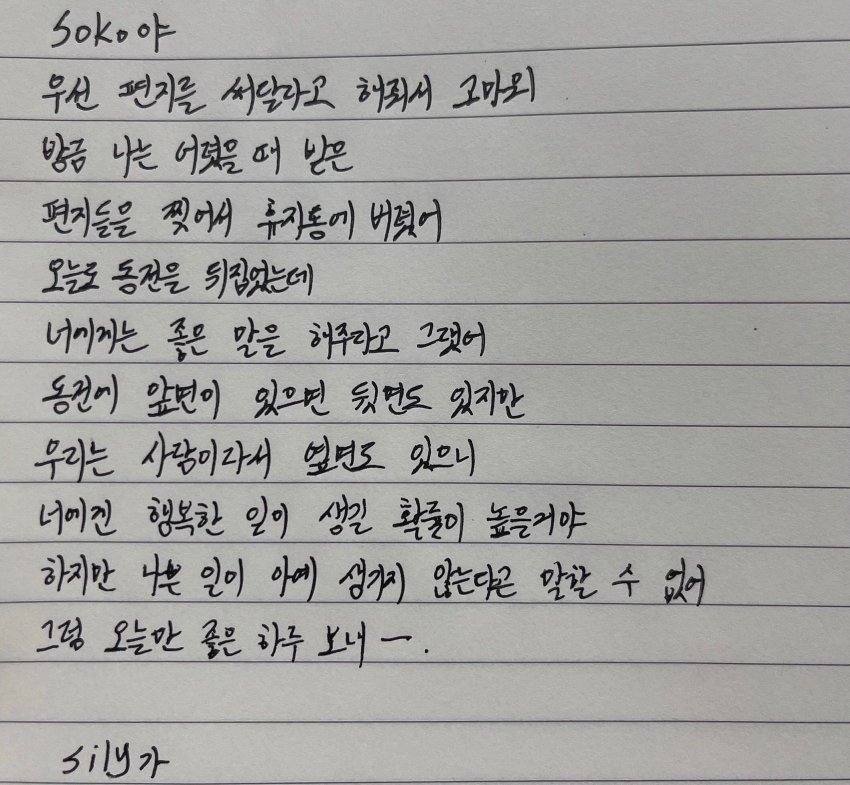 soko야
우선 편지를 써달라고 해줘서 고마외
방금 나는 어렸을 때 받은
편지들을 찢어서 휴지통에 버렸어
오늘로 동전을 뒤집었는데
너에게는 좋은 말을 해주라고 그랬어
동전에 앞면이 있으면 뒷면도 있지만
우리는 사람이라서 옆면도 있으니
너에겐 행복한 일이 생길 확률이 높을거야
하지만 나쁜 일이 아예 생기지 않는다곤 말할 수 없어
그럼 오늘만 좋은 하루 보내 ㅡ.
sily가